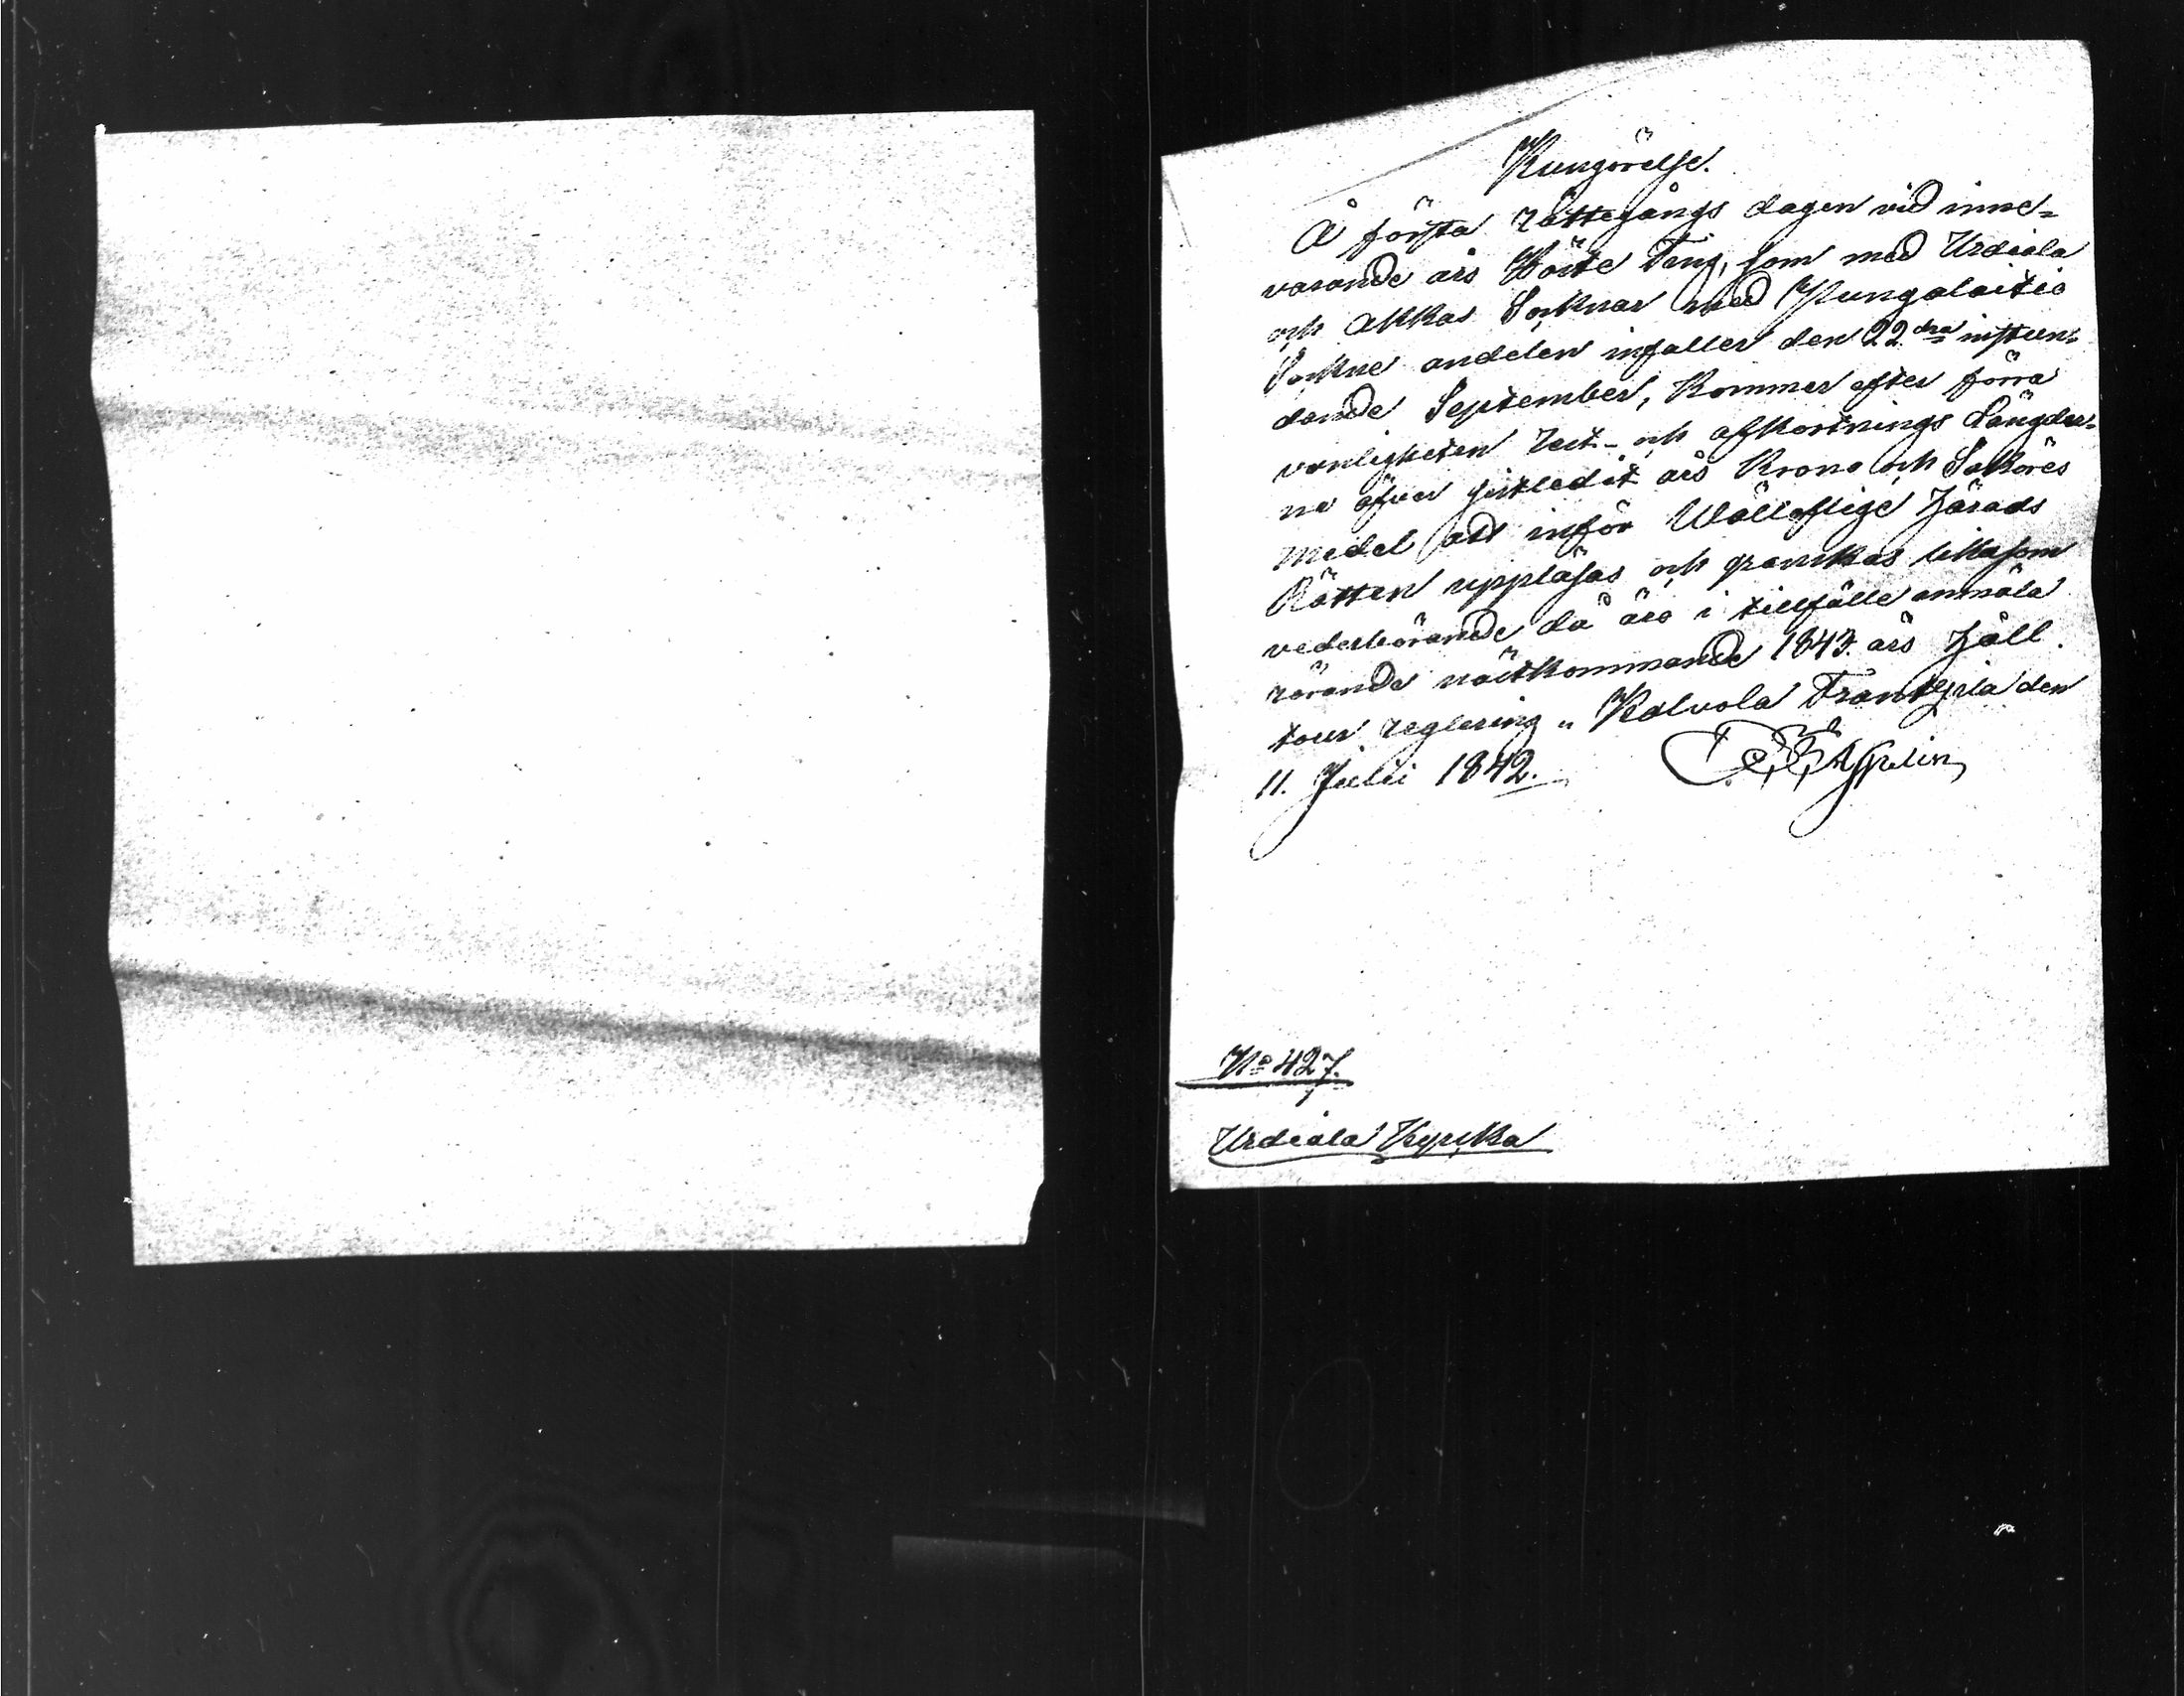 Kungörelse.
Å första rättegångs dagen vid inne=
varande års Höste Ting, som med Urdiala
och Akkas Soknar med Kungalaitio
Sokne andelen infaller den 22dra instun=
dande September, kommer efter förra
vanligheten rest- och afkortnings Längder=
na öfver sistledit års Krono och Saköres
medel att inför Wälloflige Härads
Rätten uppläsas och granskas likasom
vederbörande då äro i tillfälle anmäla
rörande nästkommande 1843. års Häll
tour reglering. Kalvola Frantsila den
11. Julii 1842.
No 427.
Urdiala Kyrcka